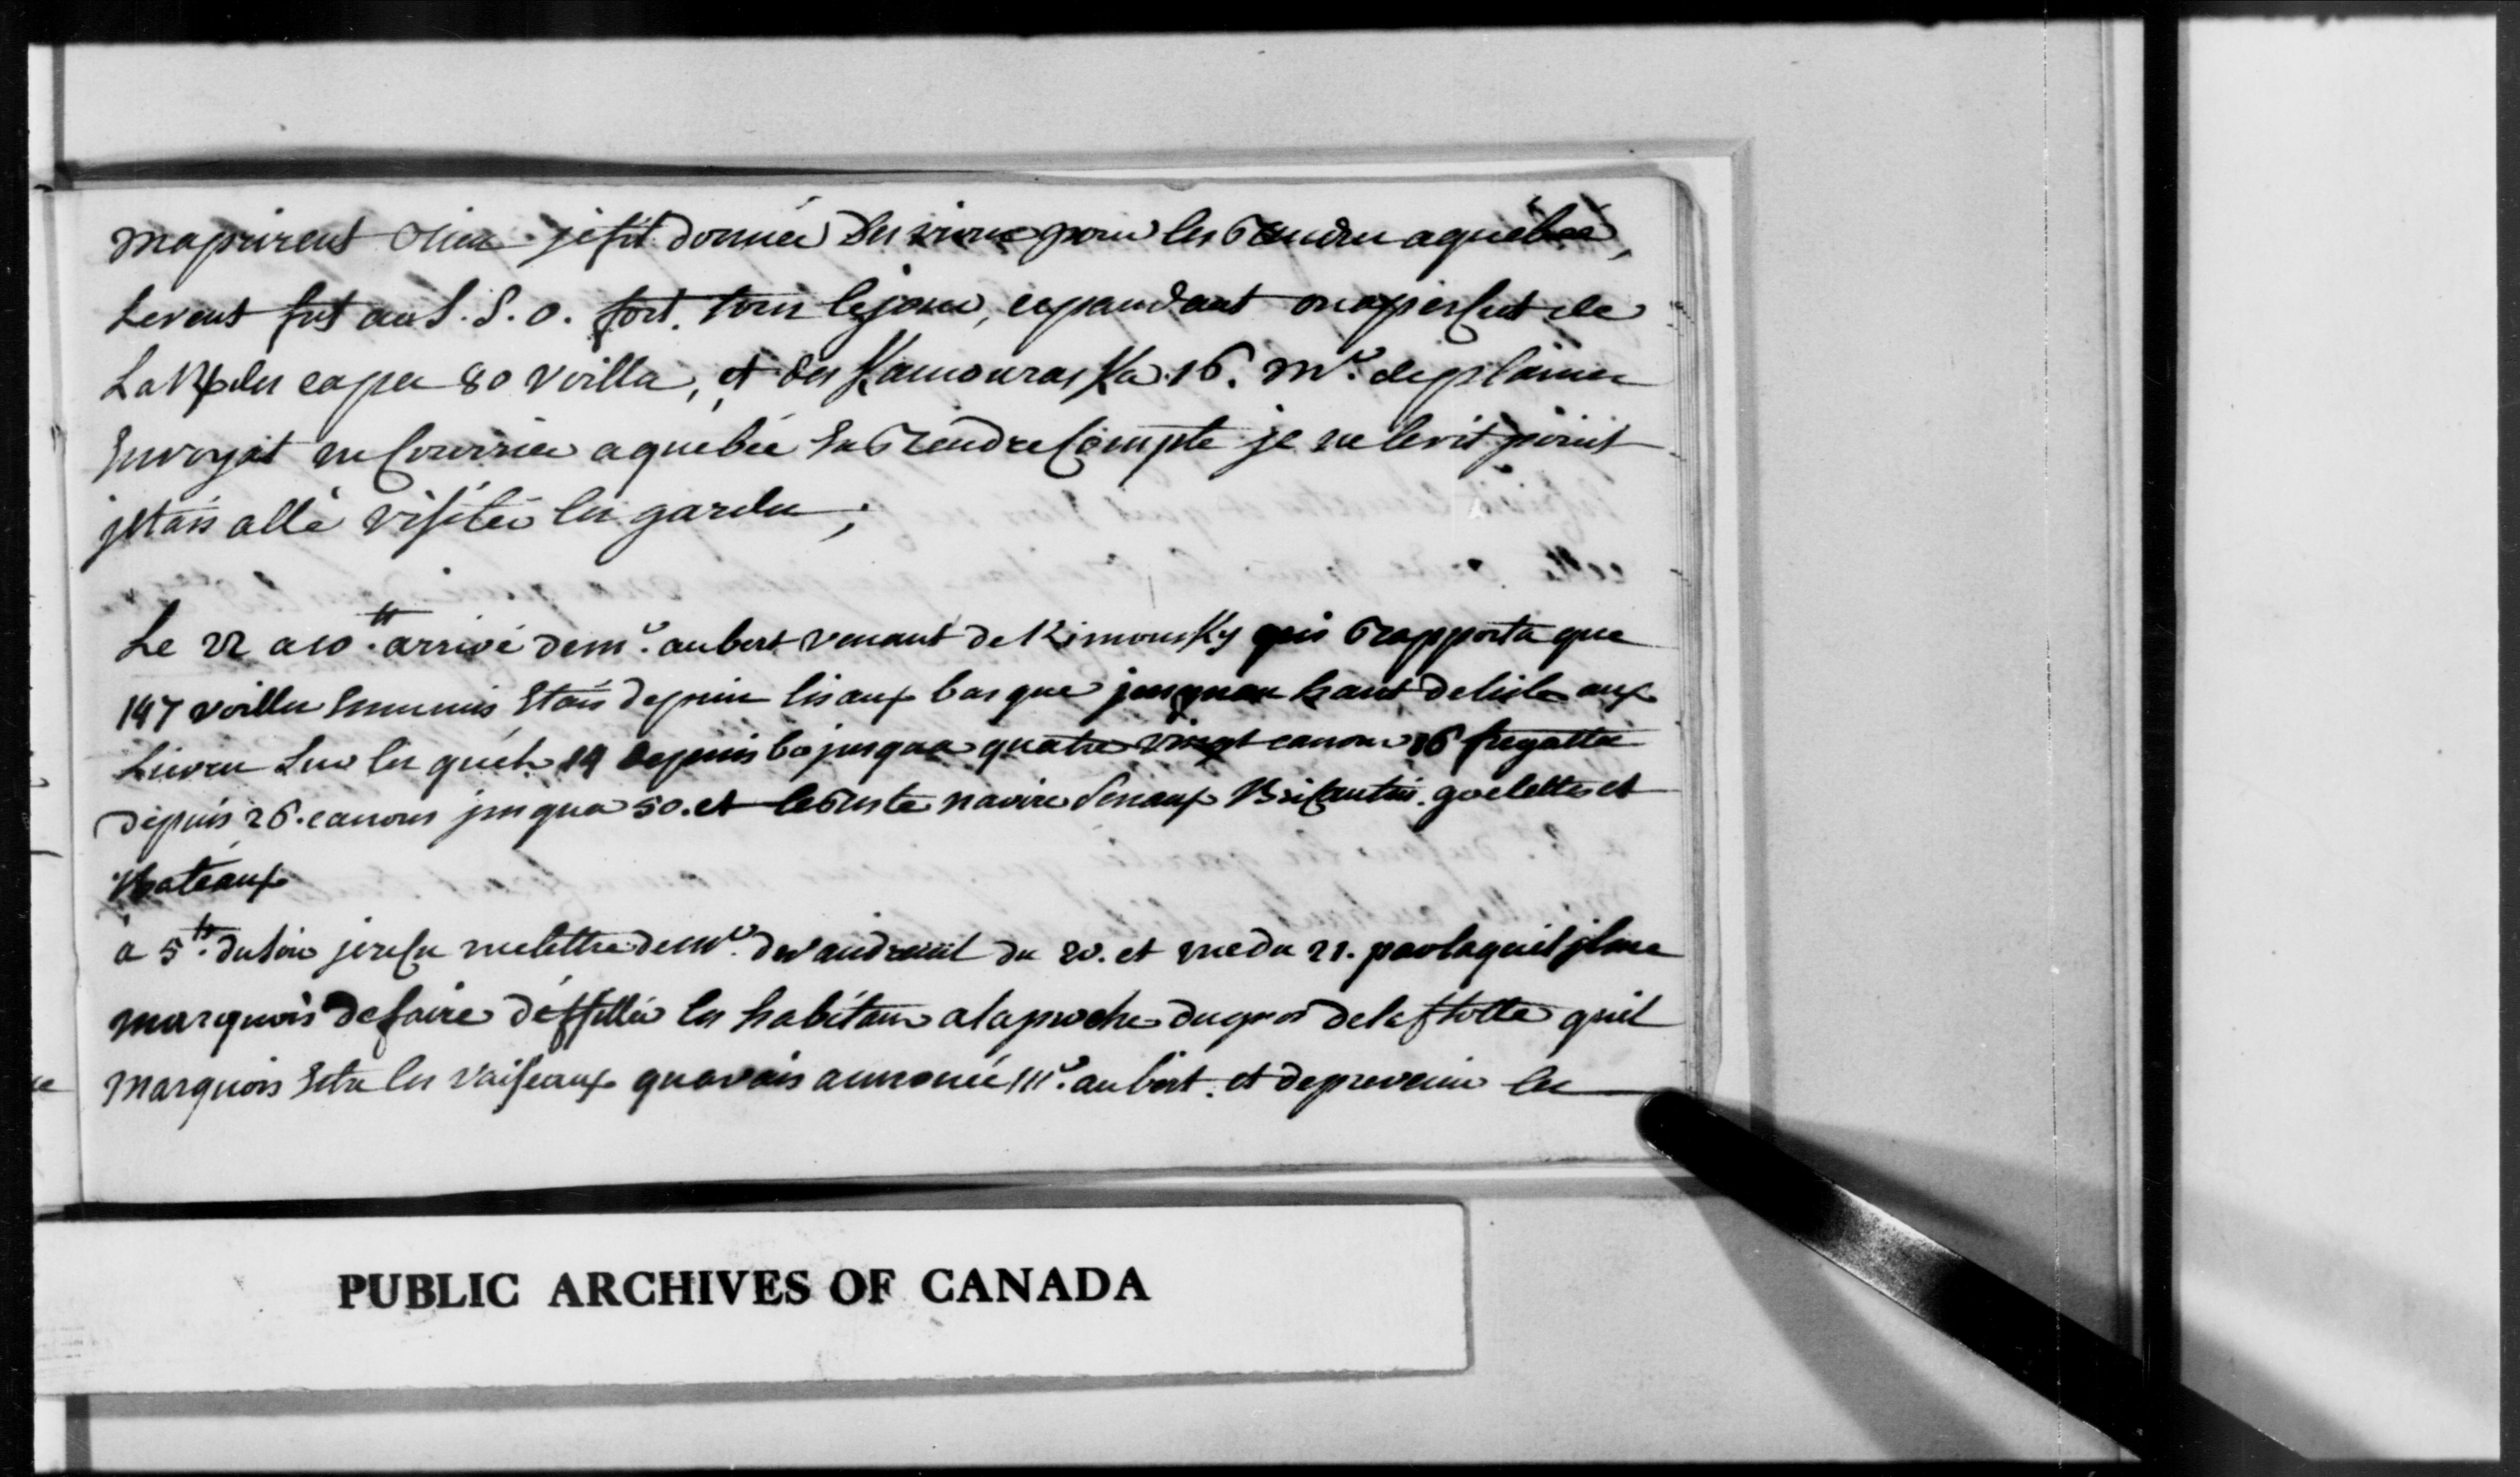 maprirent Rien je fit donnée des vivre pour les Rendre aquebec,
Levent fut au S. S. O. fort. tous lejour, cepandant onapersut de
La des capes 80 voilles, et des Kamouraska 16. Mr. deplaine
Envoyat un Courrier aquebec En Rendre Compte je ne levit point
jetais allé visitée les gardes;
Le 22 a 10.H arrivé de mr. aubert venant de Rimousky qui Rapporta que
147 voilles Ennemis Etais depuis lisaux basque jusquau haut delisle aux
Lievres Sur les quels 19 depuis 60 jusqua quatre vingt canons 16 fregatte
depuis 26. canons jusqua 50. et leReste navire Senaux Brigantin. goelettes et
Bateaux
à 5.H du soir jeresu une lettre de Mr. devaudreuil du 20. et une du 21. par laquel il me
marquois defaire déffillée les habitans alaproche du gros de laflotte quil
Marquois Estre les vaiseaux quavais annoncée Mr. aubert. et deprevenir les
PUBLIC ARCHIVES OF CANADA